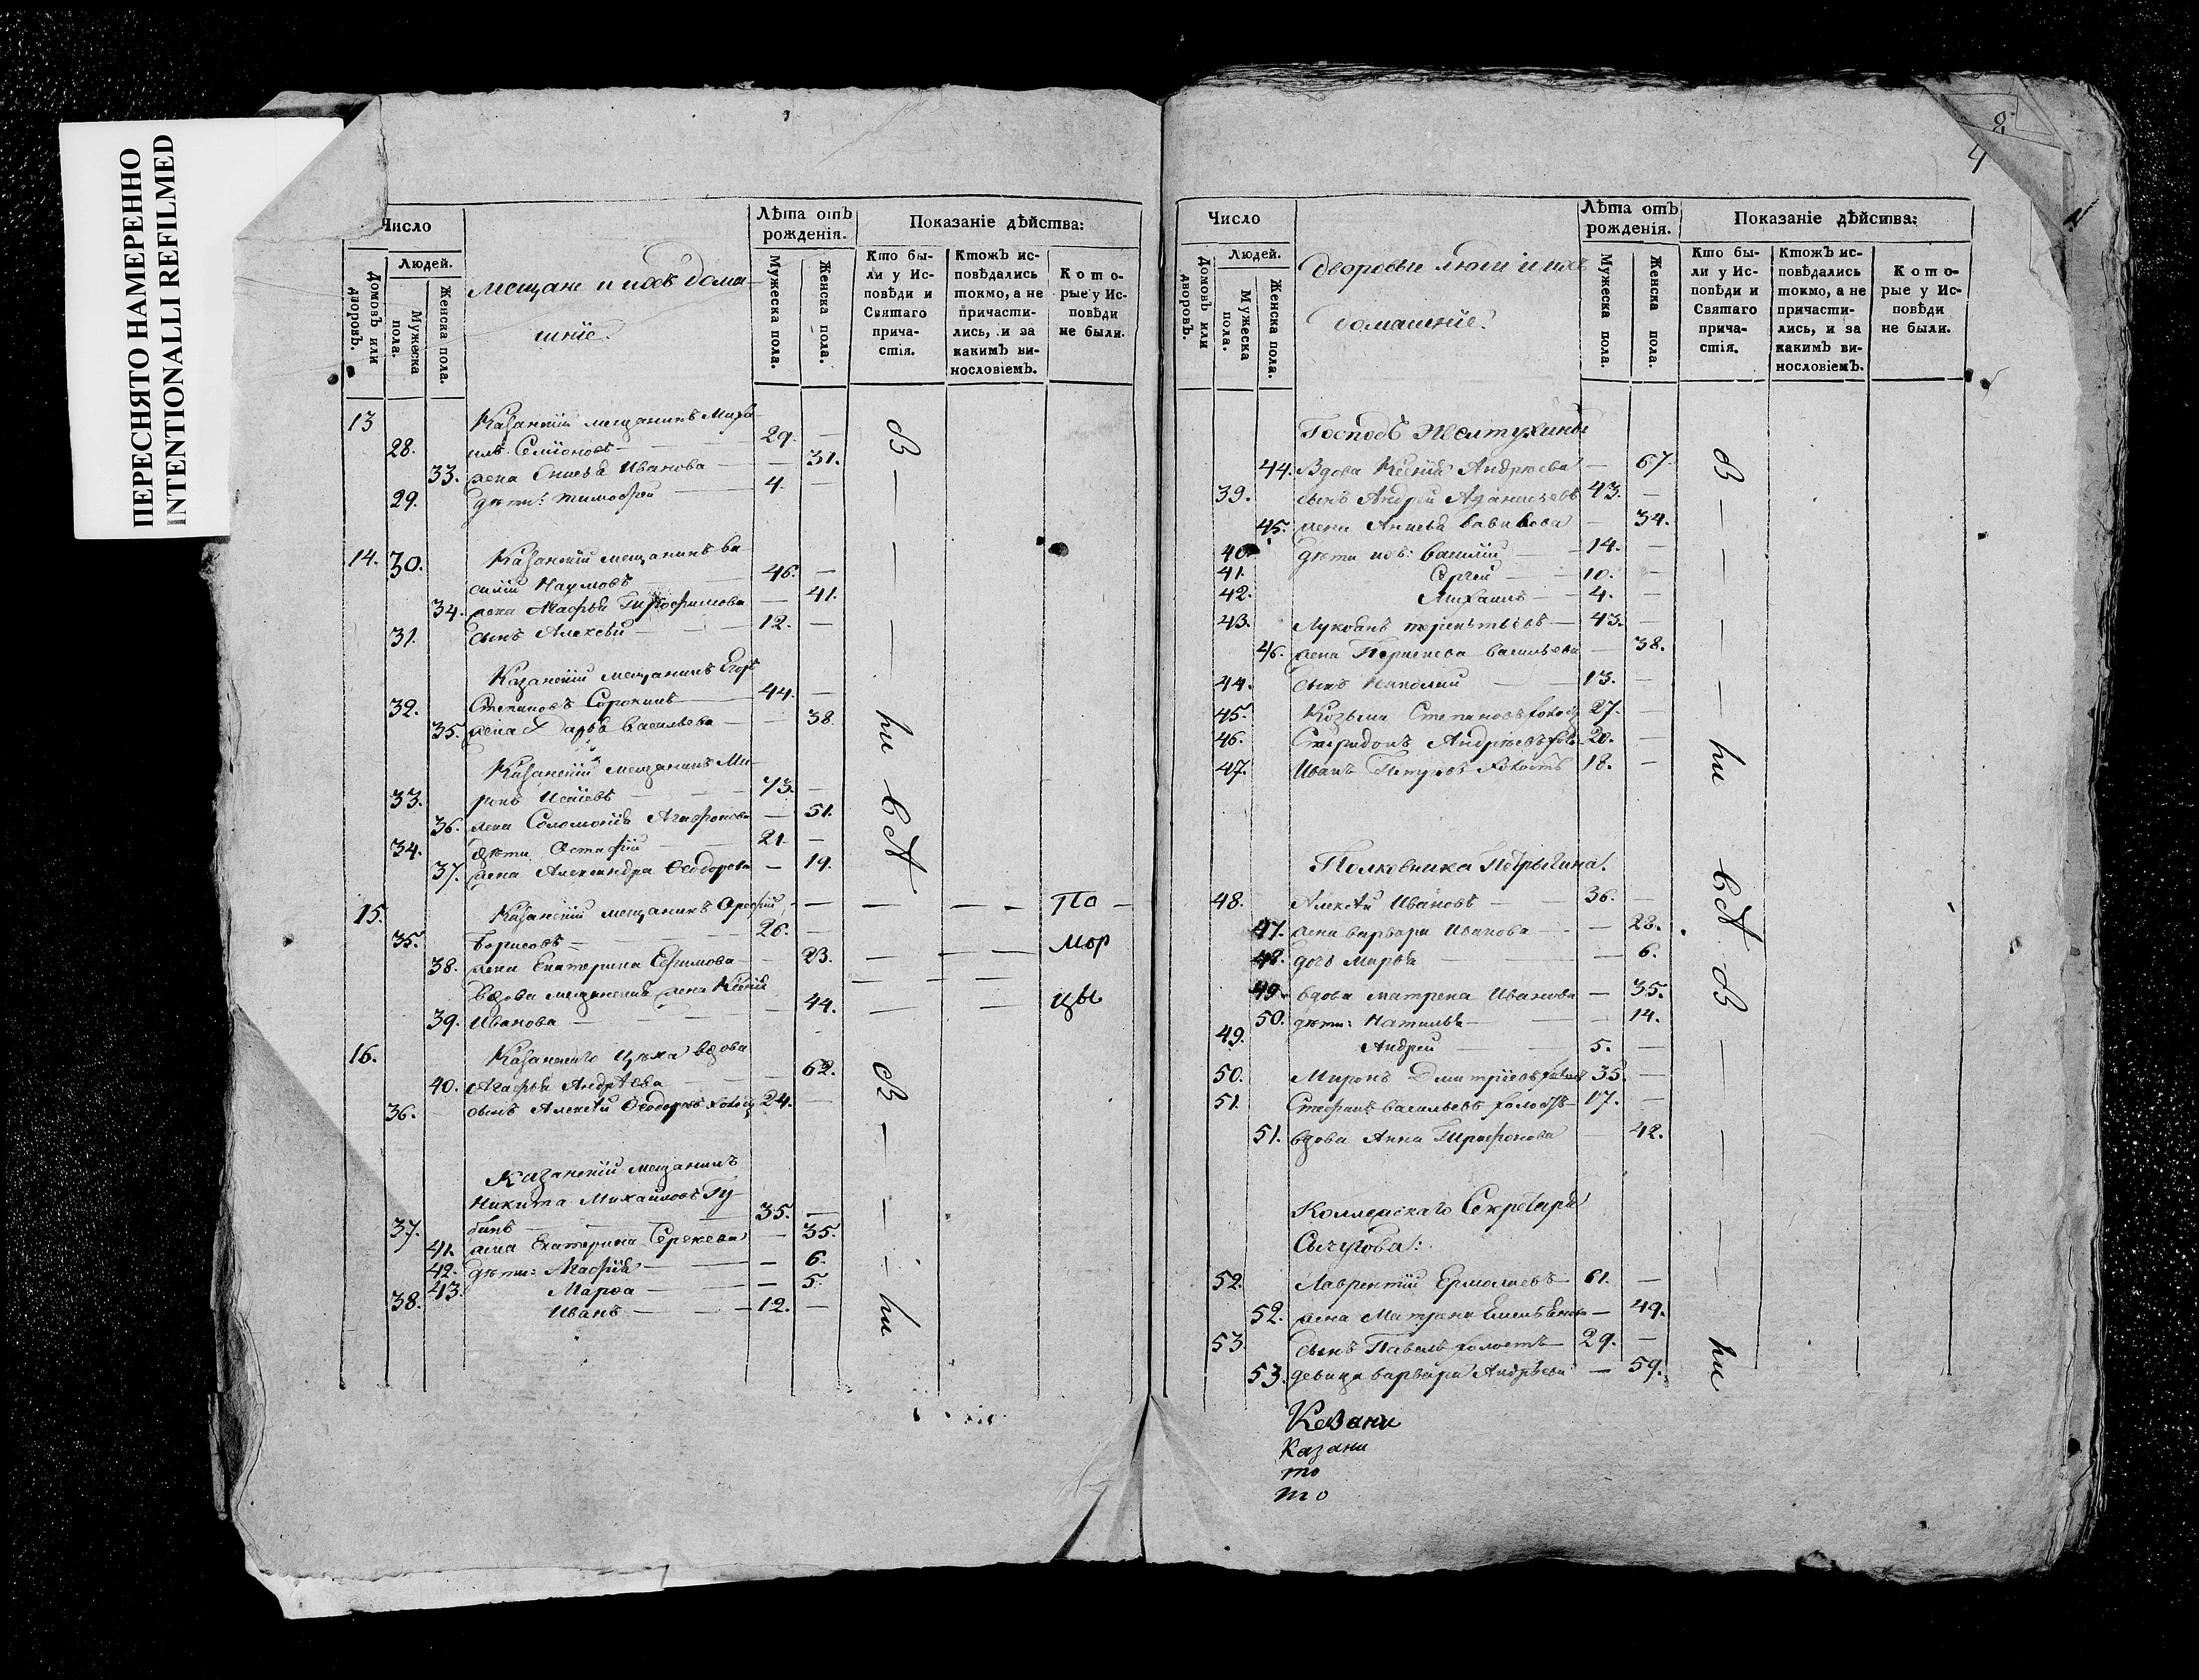 ПЕРЕСНЯТО НАМЕРЕННО
INTENTIONALLI REFILMED
Число
Людей.
Домовъ или дворовъ.
Мужеска пола.
Женска пола.
мещане и ихъ дома-
шніе.
Лѣта отъ рожденія.
Мужеска пола.
Женска пола.
Показаніе дѣйства:
Кто бы-
ли у Ис-
повѣди и
Святаго
прича-
стія.
Ктожъ ис-
повѣдались
токмо, а не
причасти-
лись, и за
какимъ ви-
нословіемъ.
Кото-
рые у Ис-
повѣди
не были.
13 Казанскій мещанинъ Миха-
28. илъ Семіоновъ — 29. —
33. жена Ивановa — 31.
29. дѣти: Тимофей — 4. —
14. 30. Казанскій мещанинъ Ва-
силій Наумовъ — 46. —
34. жена Агафья — 41.
31. сынъ Алексѣй — 12. —
Казанскій мещанинъ Егоръ
32. Степановъ Сорокинъ — 44. —
35. жена Дарья Васильева — 38.
Казанскій мещанинъ Ми-
33. ронъ Исаіевъ — 73. —
36. жена Соломонія Агафонова — 51.
34. дѣти Остафій — 21 —
37. жена Александра Ѳеодорова — 19.
15. Казанскій мещанинъ
35. Борисовъ — 26. —
38. жена Екатерина Ефимова — 23.
Вдова мещанская жена Ксенія
39. Иванова — 44.
16. Казанскаго цѣха вдова
40. Агафья Андрѣева — 62.
36. сынъ Алексѣй Ѳеодоровъ 24. —
Казанскій мещанинъ
Никита Михайловъ Гу-
37. бинъ — 35. —
41. жена Екатерина Сергеева — 35.
42. дѣти: Агафія — 6.
43. Марѳа — 5.
38. Иванъ — 12. —
В
ни
всѣ
По
мор
цы
В
ни
2
4
Число
Людей.
Домовъ или дворовъ.
Мужеска пола.
Женска пола.
Дворовые люди и ихъ
домашніе.
Лѣта отъ рожденія.
Мужеска пола.
Женска пола.
Показаніе дѣйства:
Кто бы-
ли у Ис-
повѣди и
Святаго
прича-
стія.
Ктожъ ис-
повѣдались
токмо, а не
причасти-
лись, и за
какимъ ви-
нословіемъ.
Кото-
рые у Ис-
повѣди
не были.
Господъ Желтухины
44. Вдова Ксенія Андрѣева — 67.
39. сынъ Андрей Аѳанасьевъ 43. —
45. жена — 34.
40. дѣти ихъ: Василій — 14. —
41. Сергей — 10. —
42. Михаилъ — 4. —
43. Лукоянъ терентьевъ — 43. —
46. жена Васильева — 38.
44. сынъ Николай — 13. —
45. Козьма Степановъ 27. —
46. Спиридонъ Андрѣевъ 20. —
47. Иванъ Петровъ холостъ 18. —
Полковника
48. Алексѣй Ивановъ — 36. —
47. жена Варвара Иванова — 28.
48. дочь Марья — 6.
49. Вдова Матрена Иванова — 35.
50. дѣти: Наталья — 14.
49. Андрей — 5. —
50. Миронъ Дмитріевъ 35. —
51. Стефанъ Васильевъ холостъ 17. —
51. вдова Анна — 42.
Коллежскаго Секретаря
Сычугова:
52. Лаврентій Ермолаевъ — 61. —
52. жена Матрена — 49.
53. Сынъ Павелъ холостъ — 29. —
53. девица Варвара Андрѣева — 59.
В
ни
всѣ
В
ни
Казани
то
то